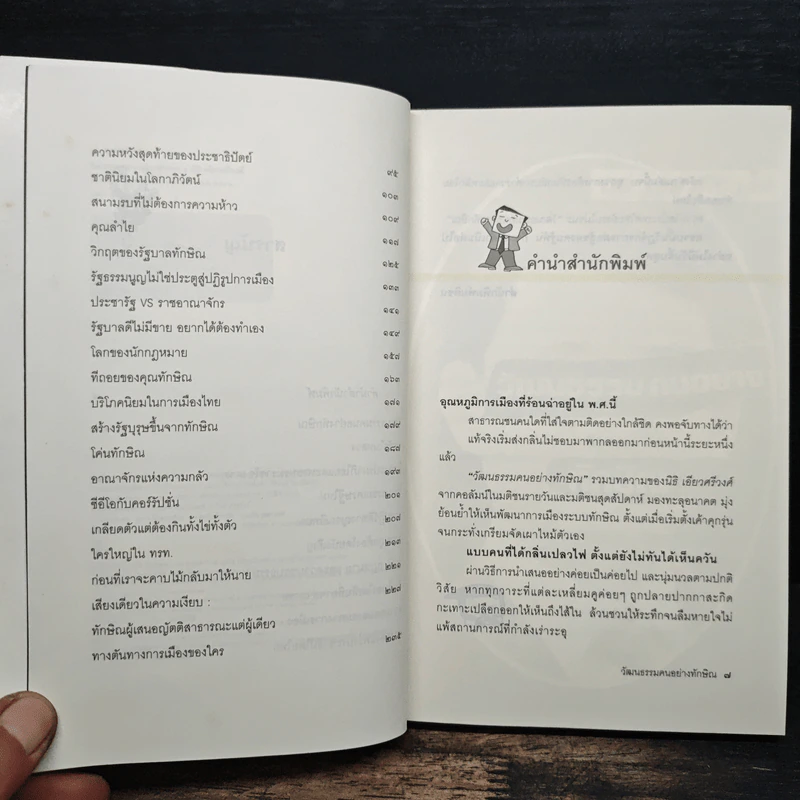 ความหวังสุดท้ายของประชาธิปัตย์ ๙๕
ชาตินิยมในโลกาภิวัตน์ ๑๐๓
สนามรบที่ไม่ต้องการความห้าว ๑๐๙
คุณลำไย ๑๑๗
วิกฤตของรัฐบาลทักษิณ ๑๒๕
รัฐธรรมนูญไม่ใช่ประตูสู่ปฏิรูปการเมือง ๑๓๓
ประชารัฐ VS ราชอาณาจักร ๑๔๑
รัฐบาลดีไม่มีขาย อยากได้ต้องทำเอง ๑๔๙
โลกของนักกฎหมาย ๑๕๗
ทีถอยของคุณทักษิณ ๑๖๓
บริโภคนิยมในการเมืองไทย ๑๗๑
สร้างรัฐบุรุษขึ้นจากทักษิณ ๑๗๙
โค่นทักษิณ ๑๘๗
อาณาจักรแห่งความกลัว ๑๙๓
ซีอีโอกับคอร์รัปชั่น ๒๐๑
เกลียดตัวแต่ต้องกินทั้งไข่ทั้งตัว ๒๐๗
ใครใหญ่ใน ทรท. ๒๑๓
ก่อนที่เราจะคาบไม้กลับมาให้นาย ๒๒๗
เสียงเดียวในความเงียบ :
ทักษิณผู้เสนอญัตติสาธารณะแต่ผู้เดียว ๒๓๕
ทางตันทางการเมืองของใคร
คำนำสำนักพิมพ์
อุณหภูมิการเมืองที่ร้อนฉ่าอยู่ใน พ.ศ.นี้
สาธารณชนคนใดที่ใส่ใจตามติดอย่างใกล้ชิด คงพอจับทางได้ว่า
แท้จริงเริ่มส่งกลิ่นไม่ชอบมาพากลออกมาก่อนหน้านี้ระยะหนึ่ง
แล้ว
“วัฒนธรรมคนอย่างทักษิณ” รวมบทความของนิธิ เอียวศรีวงศ์
จากคอลัมน์ในมติชนรายวันและมติชนสุดสัปดาห์ มองทะลุอนาคต มุ่ง
ย้อนย้ำให้เห็นพัฒนาการเมืองระบบทักษิณ ตั้งแต่เมื่อเริ่มตั้งเค้าคุกรุ่น
จนกระทั่งเกรียมจัดเผาไหม้ตัวเอง
แบบคนที่ได้กลิ่นเปลวไฟ ตั้งแต่ยังไม่ทันได้เห็นควัน
ผ่านวิธีการนำเสนออย่างค่อยเป็นค่อยไป และนุ่มนวลตามปกติ
วิสัย หากทุกวาระที่แต่ละเหลี่ยมคูค่อยๆ ถูกปลายปากกาสะกิด
กะเทาะเปลือกออกให้เห็นถึงไส้ใน ล้วนชวนให้ระทึกจนลืมหายใจไม่
แพ้สถานการณ์ที่กำลังเร่าระอุ
วัฒนธรรมคนอย่างทักษิณ ๗